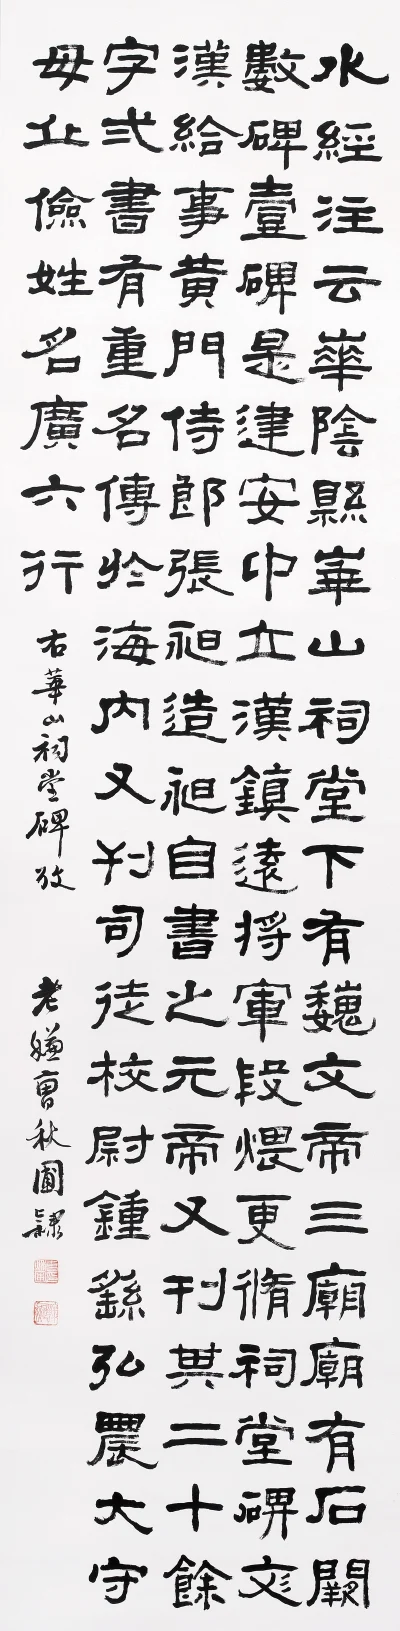 水經注云崋陰縣崋山祠堂下有魏文帝三廟廟有石闕
數碑壹碑是建安中立漢鎮遠將軍段煨更脩祠堂碑文
漢給事黃門侍郎張昶造昶自書之元帝又刊其二十餘
字弍書有重名傳於海內又刊司徒校尉鍾繇弘農大守
毋丘儉姓名廣六行
右華山祠堂碑攷
老嫌曹秋圃隸